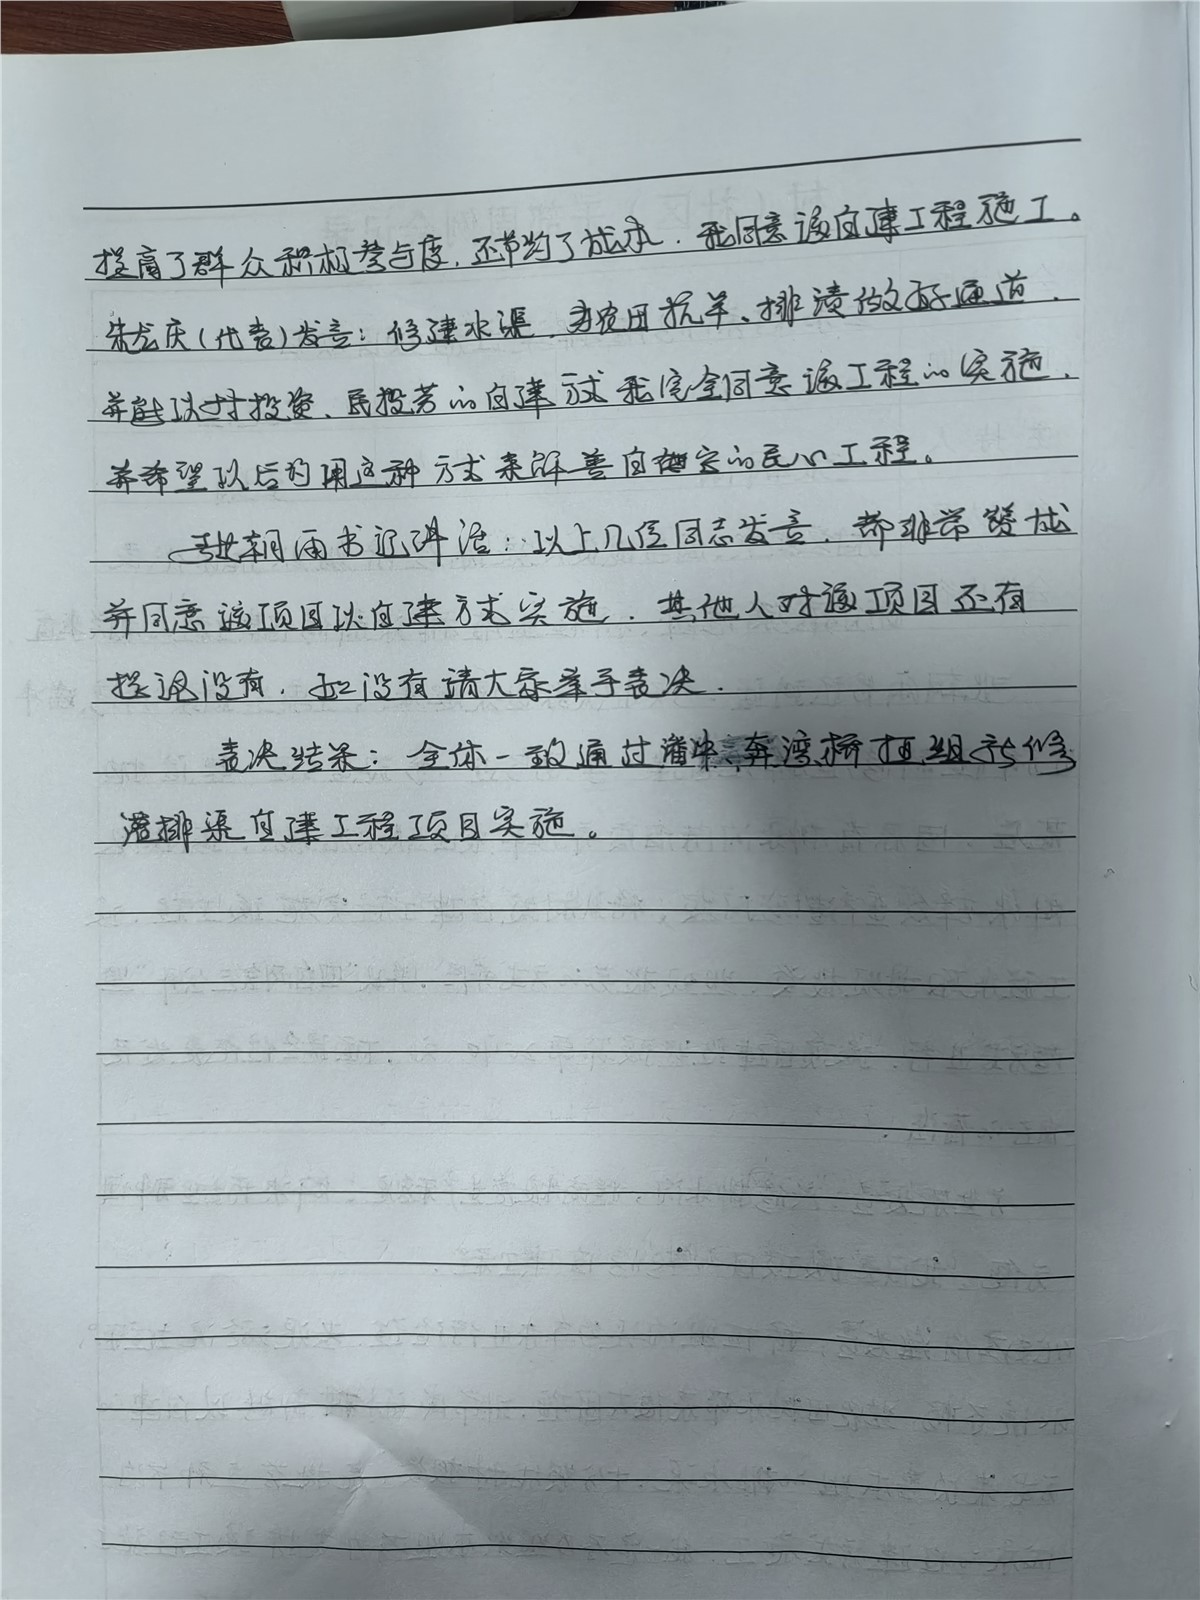 提高了群众积极参与度，还节约了成本，我同意该自建工程施工。
朱龙庆(代表)发言：修建水渠，为农田抗旱、排渍做好通道，
并能以村投资、民投劳的自建方式我完全同意该工程的实施，
并希望以后均用这种方式来改善自家的民心工程。
朝雨书记讲话：以上几位同志发言，都非常赞成
并同意该项目以自建方式实施，其他人对该项目还有
提议没有，如没有请大家举手表决。
表决结果：全体一致通过潘冲、奔湾桥组新修
灌排渠自建工程项目实施。